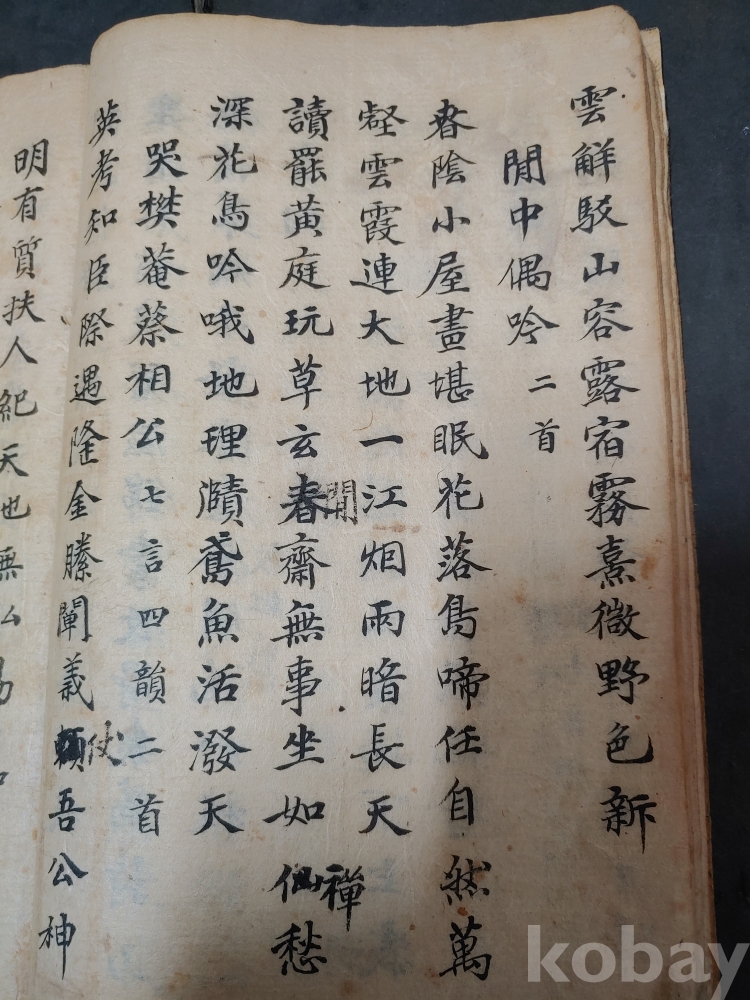 雲觧駁山容露宿霧熹微野色新
閒中偶吟 二首
春陰小屋晝堪眠花落鳥啼任自然萬
壑雲霞連大地一江烟雨暗長天
讀罷黃庭玩草玄春閒齋無事坐如仙禪愁
深花鳥吟哦地理賾鳶魚活潑天
哭樊菴蔡相公 七言四韻二首
英考知臣際遇隆金縢闡義頼仗吾公神
明有質扶人紀天也無
kobay